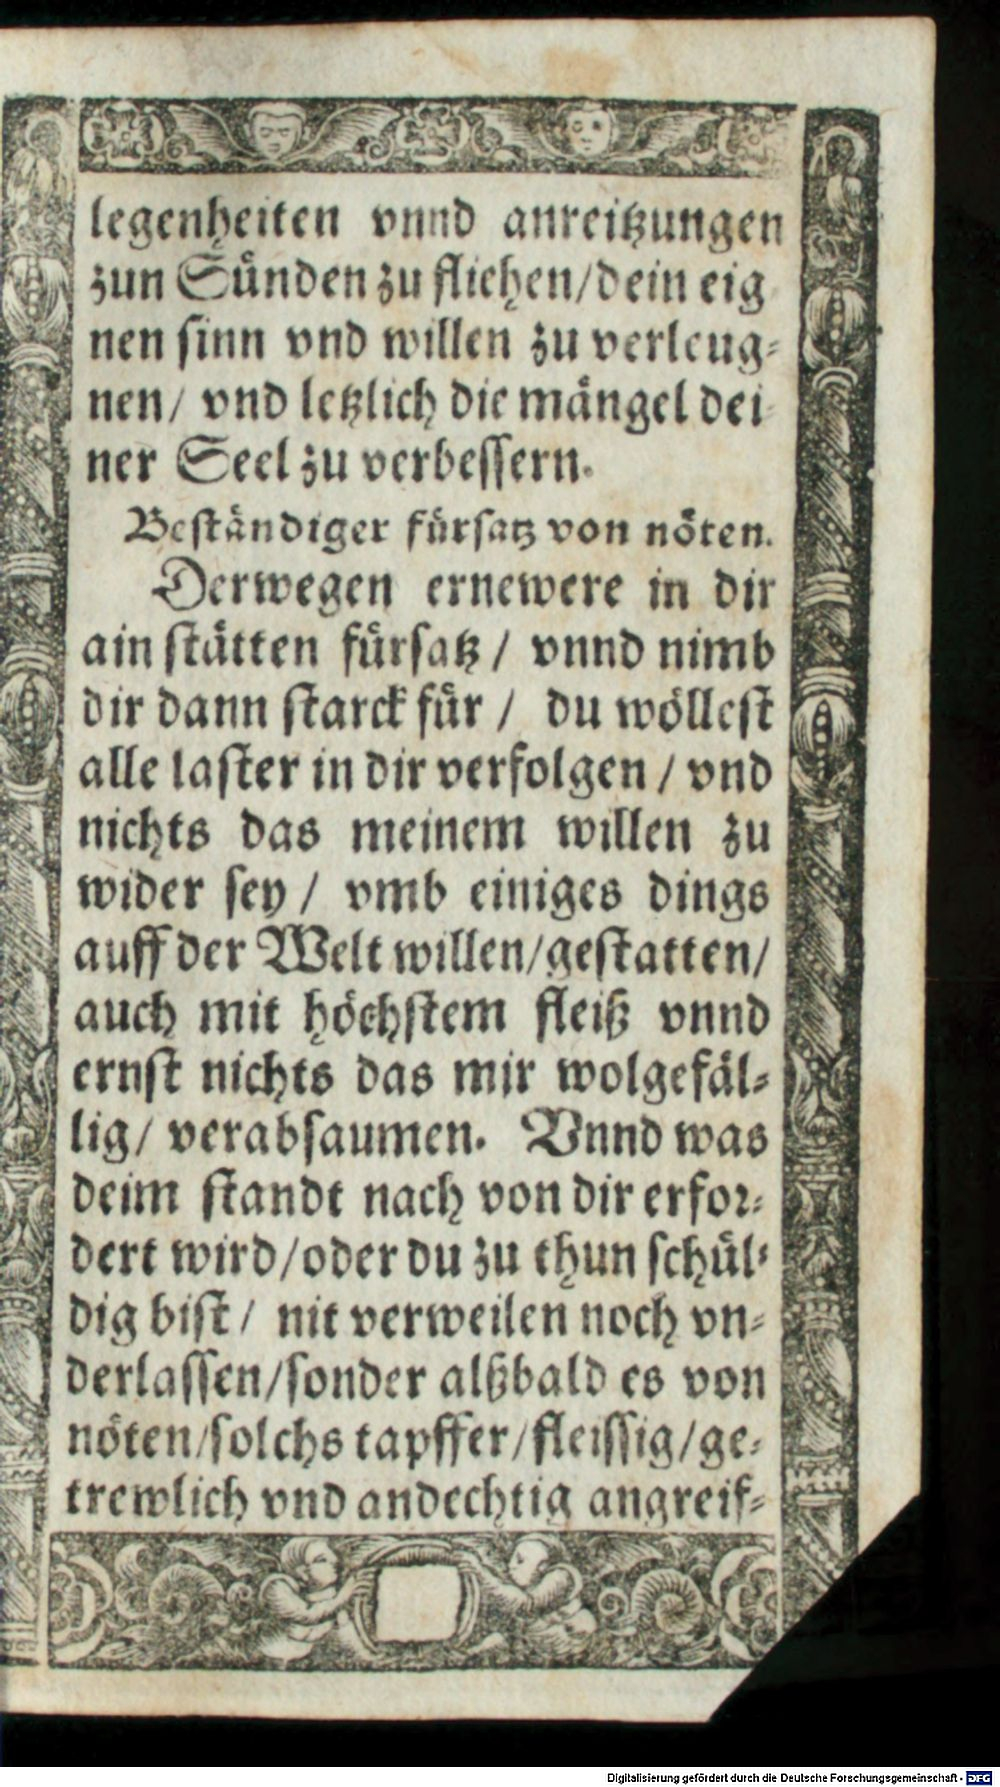 legenheiten vnnd anreitzungen
zun Sünden zu fliehen/dein eig
nen sinn vnd willen zu verleug-
nen/ vnd letzlich die mängel dei-
ner Seel zu verbessern.
Beständiger fürsatz von nöten.
Derwegen ernewere in dir
ain stätten fürsatz / vnnd nimb
dir dann starck für / du wöllest
alle laster in dir verfolgen / vnd
nichts das meinem willen zu
wider sey / vmb einiges dings
auff der Welt willen/gestatten/
auch mit höchstem fleiß vnnd
ernst nichts das mir wolgefäl-
lig/ verabsaumen. Vnnd was
deim standt nach von dir erfor-
dert wird/oder du zu thun schül-
dig bist/ nit verweilen noch vn-
derlassen/sonder alßbald es von
nöten/solchs tapffer/fleissig/ge-
trewlich vnd andechtig angreif-
Digitalisierung gefördert durch die Deutsche Forschungsgemeinschaft - DFG